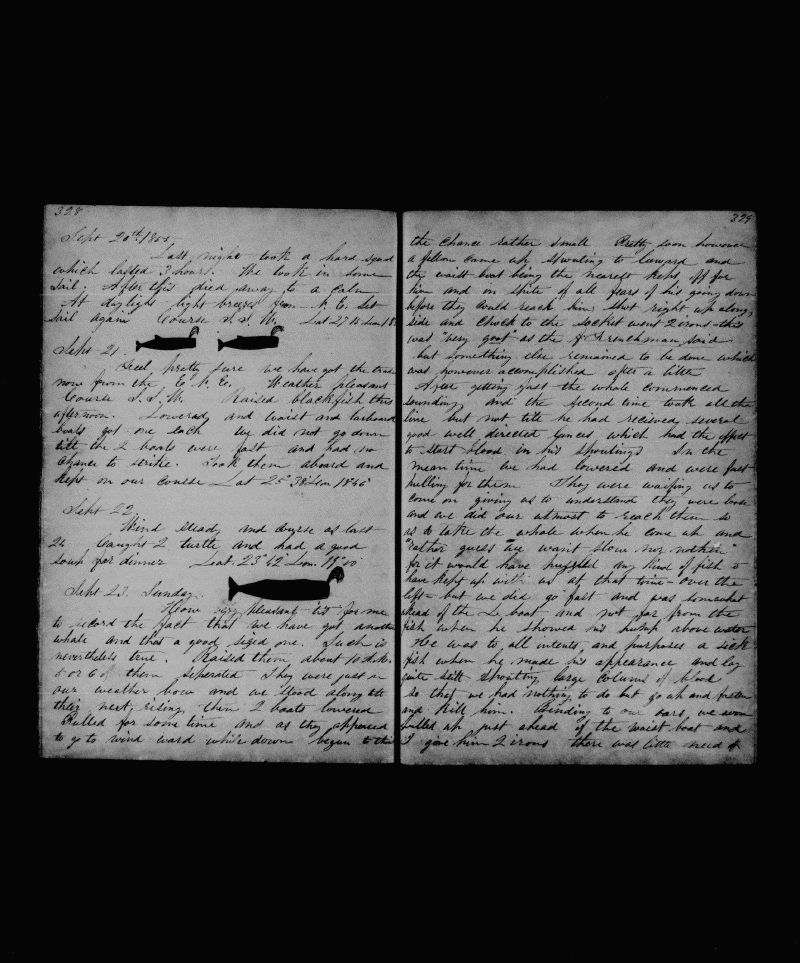 328
Sept 20th 1855
Last night took a hard squal
which lasted 3 hours. We took in some
sail. After this died away to a calm
At daylight light breeze from N. E. Set
sail again Course S. S. W. Lat 27° 15 Lon 18
Sept 21.
Feel pretty sure we have got the trades
now from the E. N. E. Weather pleasant
Course S. S. W. Raised blackfish this
afternoon. Lowered and waist and larboard
boats got one each We did not go down
till the 2 boats were fast and had no
chance to strike. Took them aboard and
kept on our course Lat 25° 38 Lon 18°46'
Sept 22.
Wind steady and course as last
24 Caught 2 turtle and had a good
soup for dinner Lat. 23° 42' Lon. 18°
Sept 23. Sunday.
How very pleasant tis for me
to record the fact that we have got another
whale and that a good sized one. Such is
nevertheless true. Raised them about 10 A.M.
5 or 6 of them seperated They were just on
our weather bow and we stood along till
their next rising then 2 boats lowered
Pulled for some time and as they appeared
to go to wind ward while down began to think
329
the chance rather small Pretty soon however
a fellow came up spouting to leward and
the waist boat being the nearest kept off for
him and in spite of all fears of his going down
before they could reach him shot right up along
side and chock to the socket went 2 irons this
was "very goot" as the Frenchman said
but something else remained to be done which
was however accomplished after a little
After getting fast the whale commenced
sounding and the second time took all the
line but not till he had recieved several
good well directed lances which had the effect
to start blood in his spoutings In the
mean time we had lowered and were fast
pulling for them They were waifing us to
come on giving us to understand they were loose
and we did our utmost to reach them so
as to take the whale when he come up and
"rather guess we want slow nor nothin"
for it would have puzzled any kind of fish to
have kept up with us at that time - over the
left - but we did go fast and was somewhat
ahead of the L. boat and not far from the
fish when he showed his hump above water
He was to all intents, and purposes a sick
fish when he made his appearance and lay
quite still spouting large colums of blood
so that we had nothing to do but go up and fasten
and kill him. Bending to our oars we soon
pulled up just ahead of the waist boat and
I gave him 2 irons there was little need of